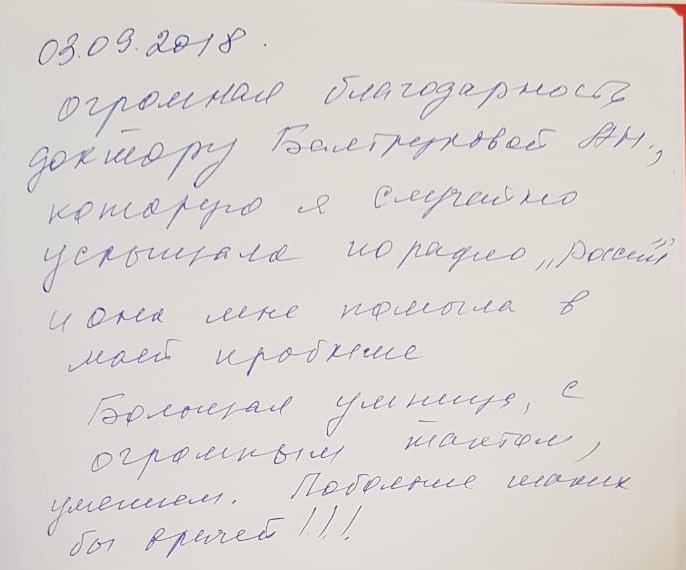 03.09.2018.
огромная благодарность
доктору Балтруковой АН.,
которую я случайно
услышала по радио „Россия"
и она мне помогла в
моей проблеме
Большая умница, с
огромным тактом,
умением. Побольше таких
бы врачей!!!